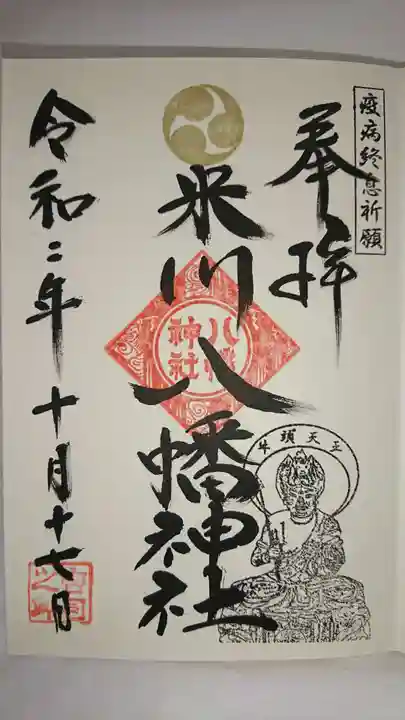 疫病終息祈願
奉拝
米川八幡神社
八幡
神社
牛頭天王
令和二年十月十七日
宮司之印